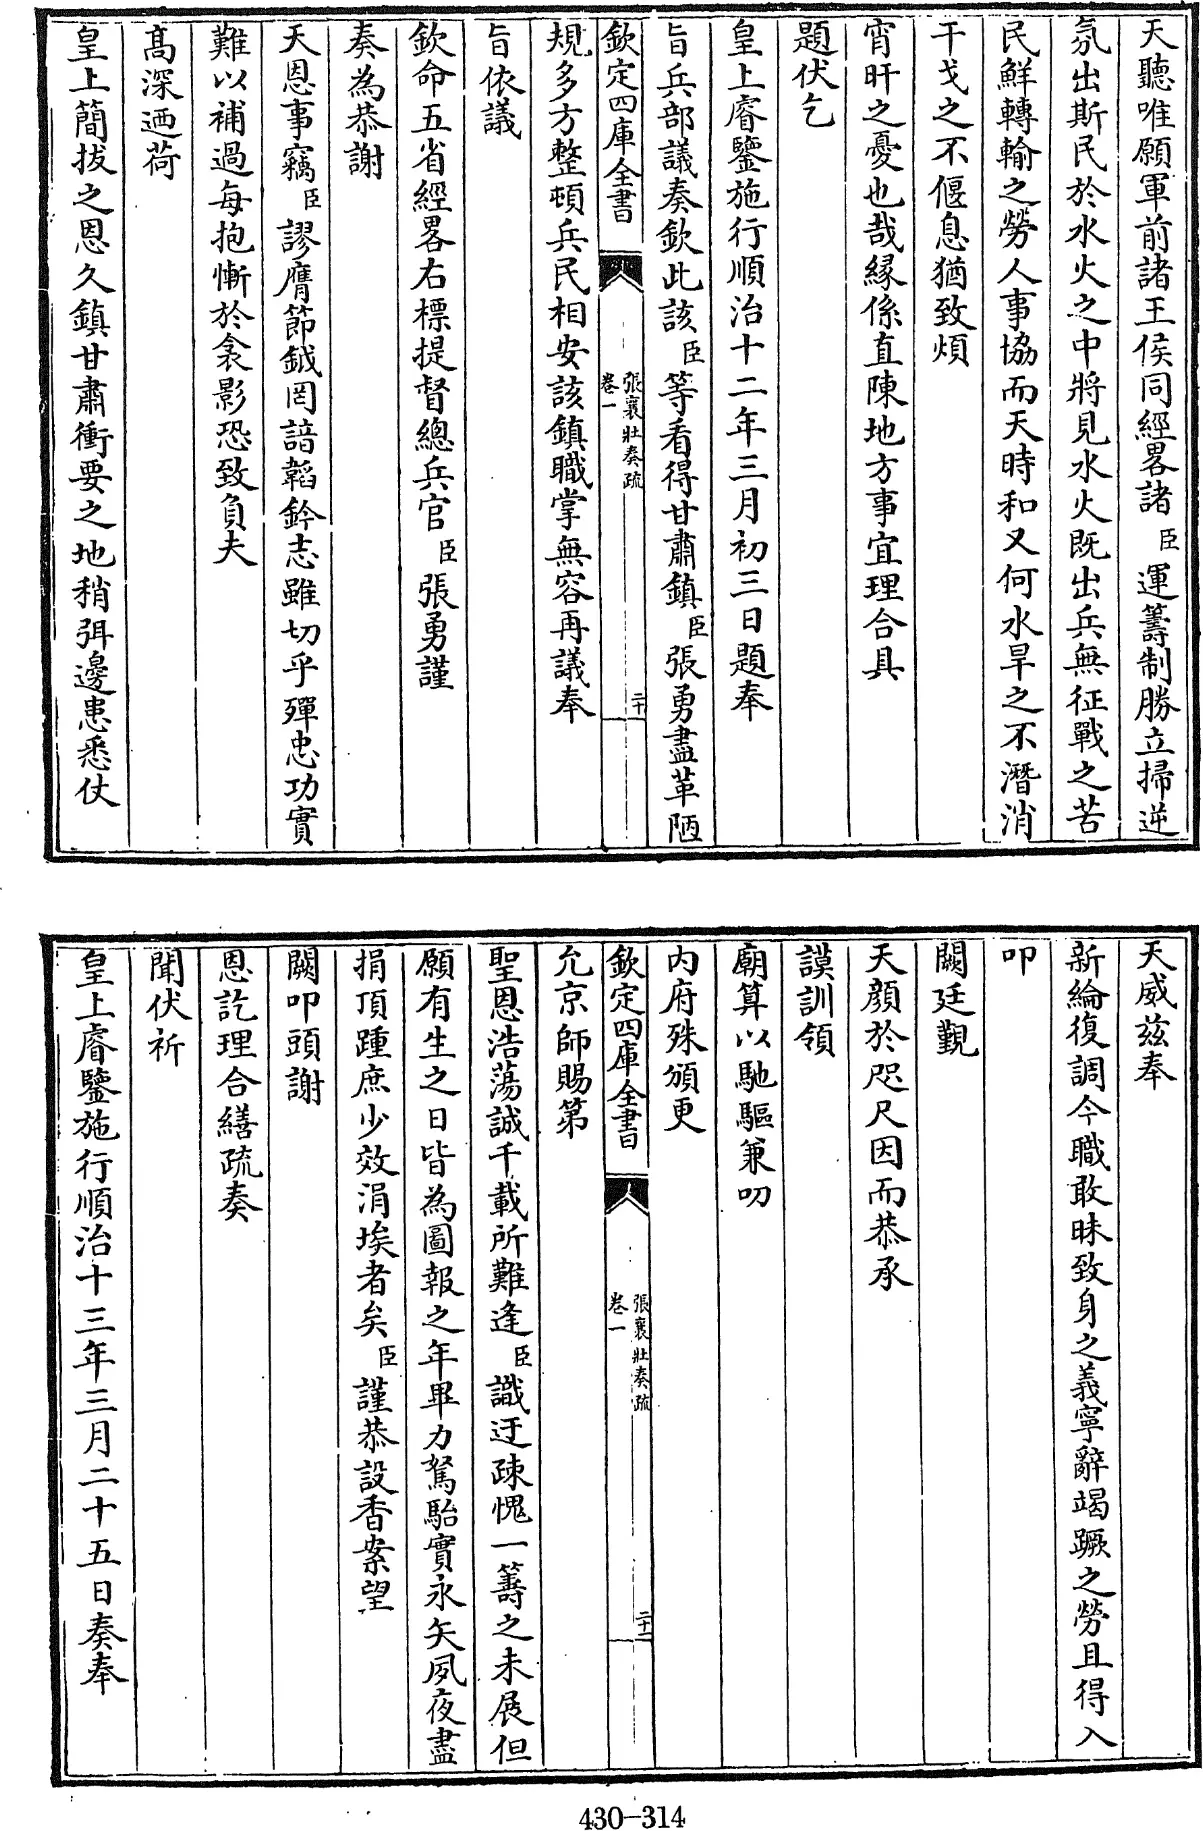 天聽唯願軍前諸王侯同經畧諸臣運籌制勝立掃逆
氛出斯民於水火之中將見水火既出兵無征戰之苦
民鮮轉輸之勞人事協而天時和又何水旱之不潛消
干戈之不偃息猶致煩
宵旰之憂也哉緣係直陳地方事宜理合具
題伏乞
皇上睿鑒施行順治十二年三月初三日題奉
旨兵部議奏欽此該臣等看得甘肅鎮臣張勇盡革陋
欽定四庫全書
張襄壯奏疏
卷一
二十
規多方整頓兵民相安該鎮職掌無容再議奉
旨依議
欽命五省經畧右標提督總兵官臣張勇謹
奏為恭謝
天恩事竊臣謬膺節鉞罔諳韜鈐志雖切乎殫忠功實
難以補過每抱慚於衾影恐致負夫
高深迺荷
皇上簡拔之恩久鎮甘肅衝要之地稍弭邊患悉仗
天威茲奉
新綸復調今職敢昧致身之義寧辭竭蹶之勞且得入
叩
闕廷覲
天顏於咫尺因而恭承
謨訓領
廟算以馳驅兼叨
內府殊頒更
欽定四庫全書
張襄壯奏疏
卷一
二十一
允京師賜第
聖恩浩蕩誠千載所難逢臣識迂疎愧一籌之未展但
願有生之日皆為圖報之年畢力駑駘實永矢夙夜盡
捐頂踵庶少效涓埃者矣臣謹恭設香案望
闕叩頭謝
恩訖理合繕疏奏
聞伏祈
皇上睿鑒施行順治十三年三月二十五日奏奉
430-314